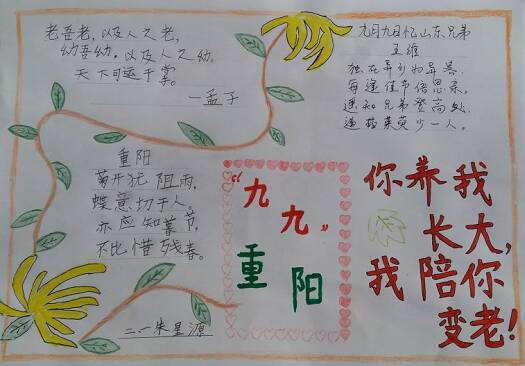 老吾老,以及人之老,
幼吾幼,以及人之幼,
天下可运于掌。
—孟子
九月九日忆山东兄弟
王维
独在异乡为异客,
每逢佳节倍思亲,
遥知兄弟登高处,
遍插茱萸少一人。
重阳
菊开犹阻雨,
蝶意切于人。
亦应知暮节,
不比惜残春。
二一朱星源
“九九”
重阳
你养我
长大,
我陪你
变老!